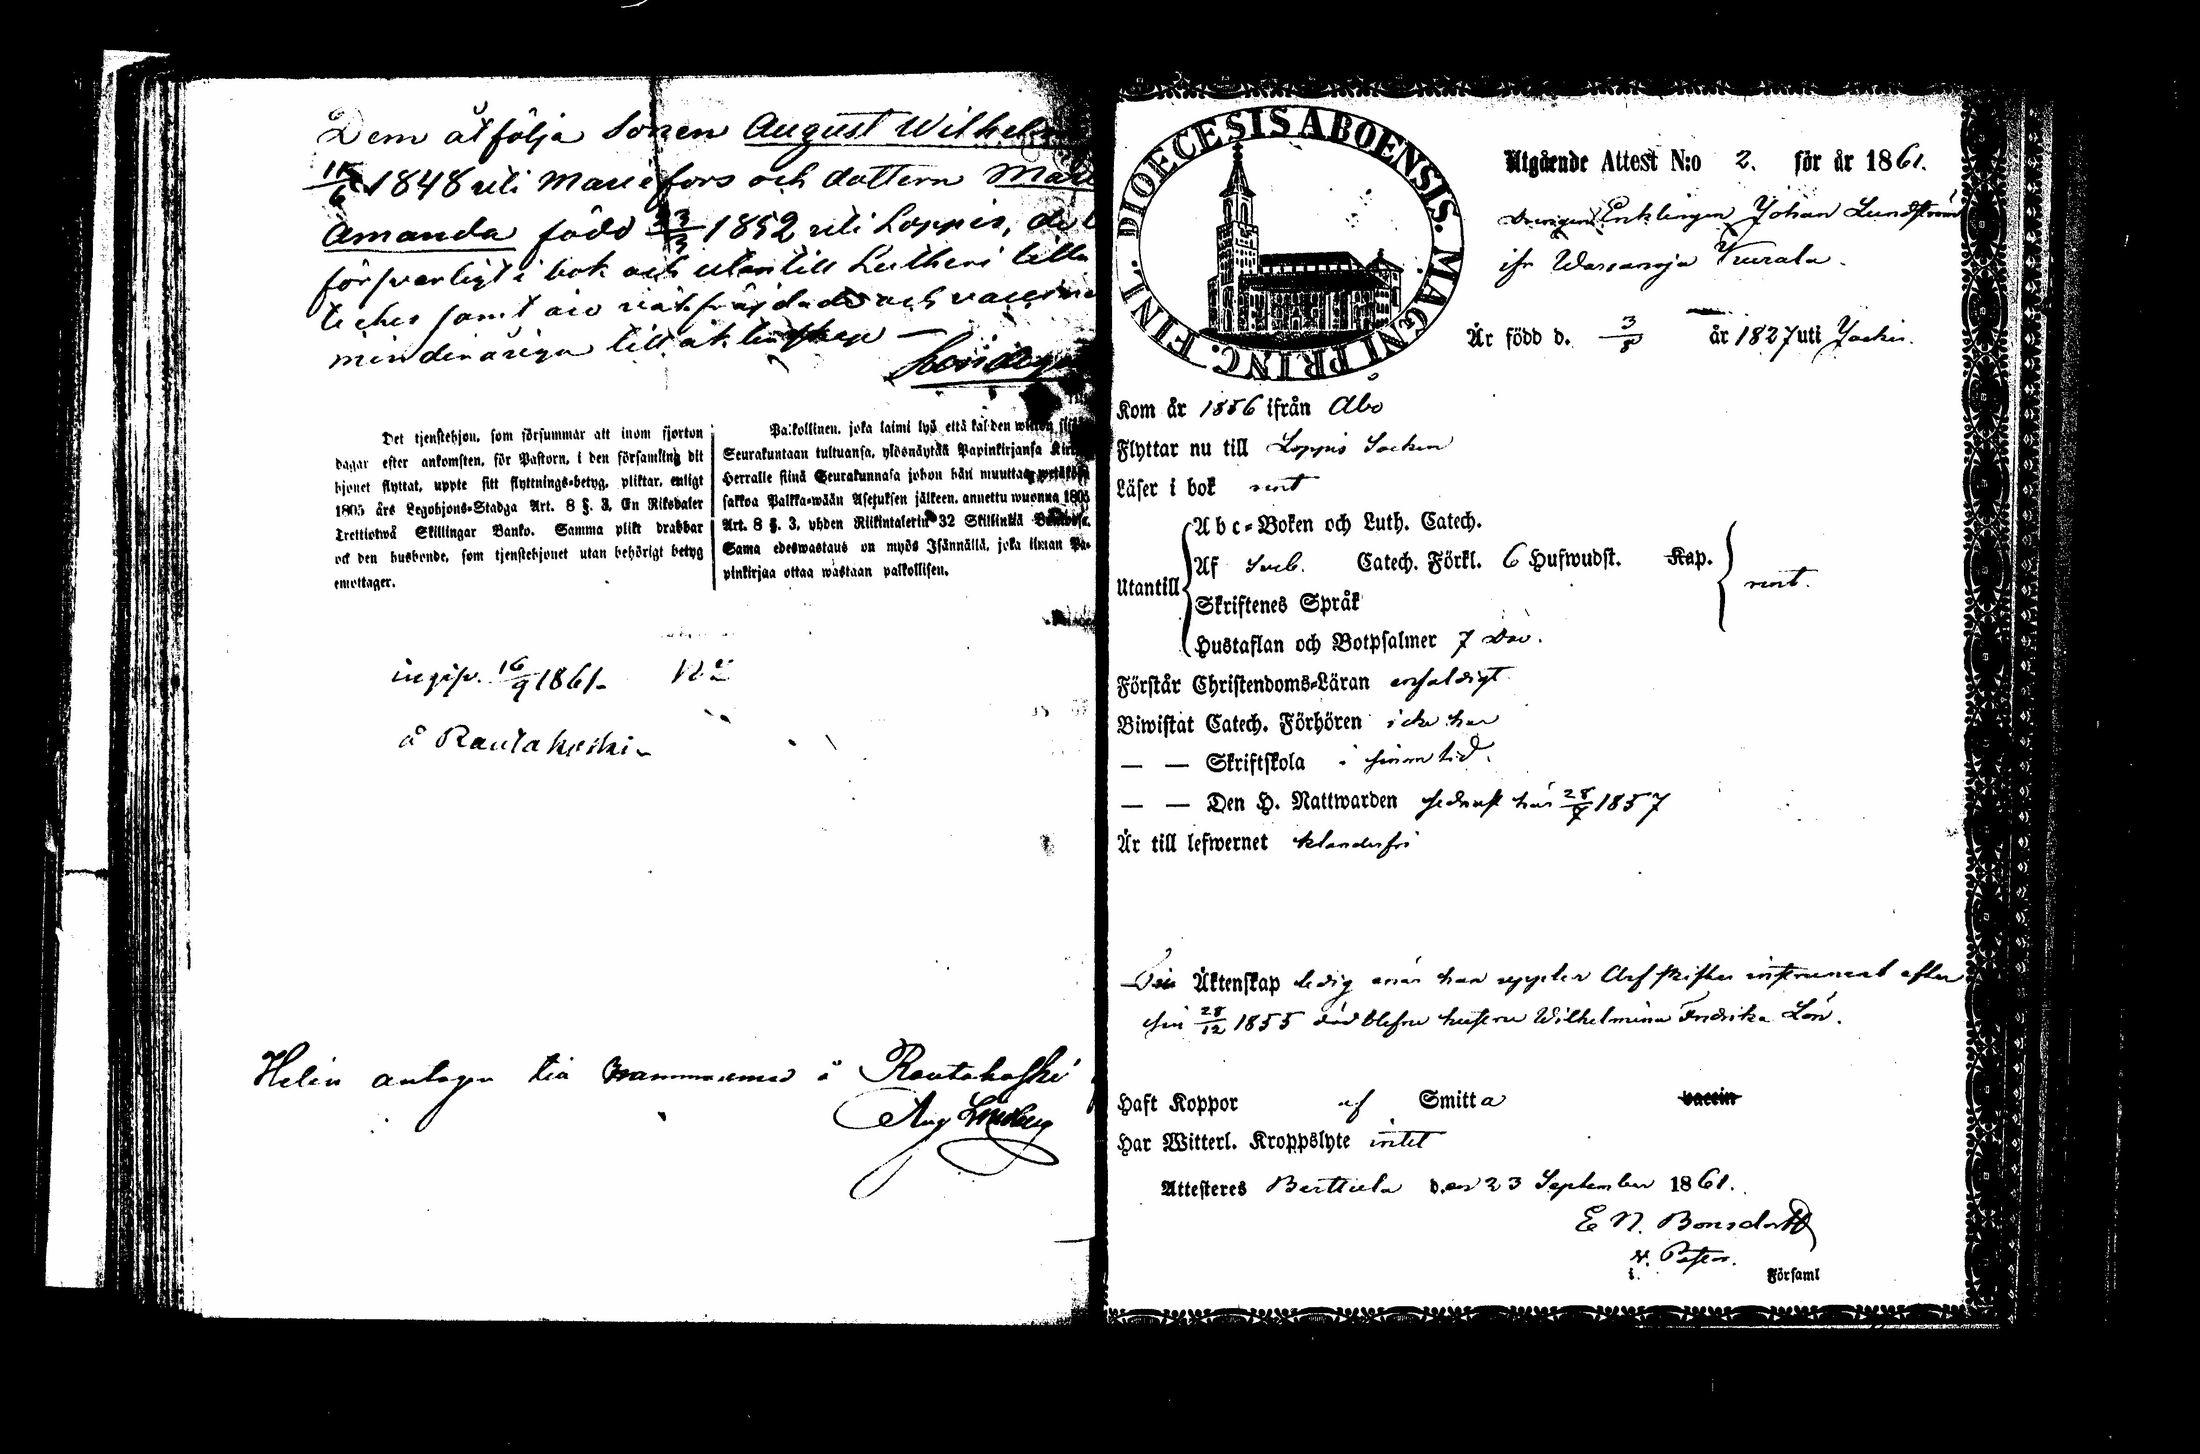 Dem åtfölja sonen August Wilhelm
1848 uti Mariefors och dottern
Amanda född 23/3 1852 uti Loppis, de
försvarligt i bok och utantill Lutheri lilla
teches samt äro och
minderåriga till äktenskap —
Det tjenstehjon, som försummar att inom fjorton
dagar efter ankomsten, för Pastorn, i den församling dit
hjonet flyttat, uppte sitt flyttnings=betyg, pliktar, enligt
1805 års Legohjons=Stadga Art. 8 §. 3. En Riksdaler
Trettiotwå Skillingar Banko. Samma plikt drabbar
ock den husbonde, som tjenstehjonet utan behörigt betyg
emottager.
Palkollinen, joka laimi lyö että kahden wiikon
Seurakuntaan tultuansa, ylösnäyttää Papinkirjansa
Herralle siinä Seurakunnasa johon hän muuttaa,
sakkoa Palkka=wään Asetuksen jälkeen, annettu wuonna 1805
Art. 8 §. 3, yhden Riikintalerin 32 Skillinkiä
Sama edeswastaus on myös Isännällä, joka ilman Pa-
pinkirjaa ottaa wastaan palkollisen.
ingifv. 16/9 1861.
å Rautakoski
Helin antagen till å Rautakoski
Aug Lindberg
DIOECESIS ABOENSIS. MAGNI PRINC. FINL.
Utgående Attest N:o 2. för år 1861.
Drengen Enklingen Johan Lundström
ifr Warsanoja Kurala.
Är född d. 3/8 år 1827 uti Jockis.
Kom år 1856 ifrån Åbo
Flyttar nu till Loppis Socken
Läser i bok rent
Utantill
Abc=Boken och Luth. Catech.
Af Sveb. Catech. Förkl. 6 Hufwudst. Kap.
rent.
Skriftenes Språk
Hustaflan och Botpsalmer 7 Dav.
Förstår Christendoms=Läran enfaldigt
Biwistat Catech. Förhören icke här
— — Skriftskola i sinom tid.
— — Den H. Nattwarden sednast här 1857
Är till lefwernet klanderfri
Äktenskap ledig när han uppter Arfskiftes instrument efter
sin 28/12 1855 död blefne hustru Wilhelmina Fredrika Lön.
Haft Koppor af Smitta vaccin
Har Witterl. Kroppslyte intet
Attesteres Berttula den 23 September 1861.
E N. Bonsdorff
v. Pastor.
i Församl